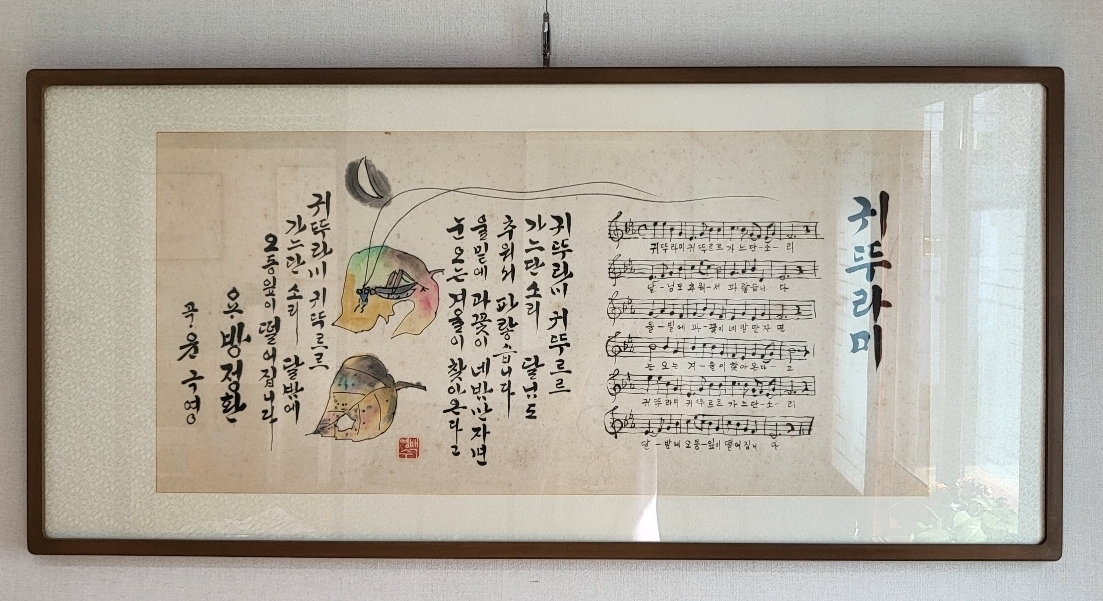 귀뚜라미
귀뚜라미 귀뚜르르 가느단-소-리
달-님도 추워-서 파랗습니다
울-밑에 과-꽃이 네밤만 자면
눈 오는 겨-울이 찾아온다-고
귀뚜라미 귀뚜르르 가느단-소-리
달-밤에 오동-잎이 떨어집니다
귀뚜라미 귀뚜르르
가느단 소리 달님도
추워서 파랗습니다
울밑에 과꽃이 네밤만 자면
눈오는 겨울이 찾아온다고
귀뚜라미 귀뚜르르
가느단 소리 달밤에
오동잎이 떨어집니다
요 방정환
곡 윤극영